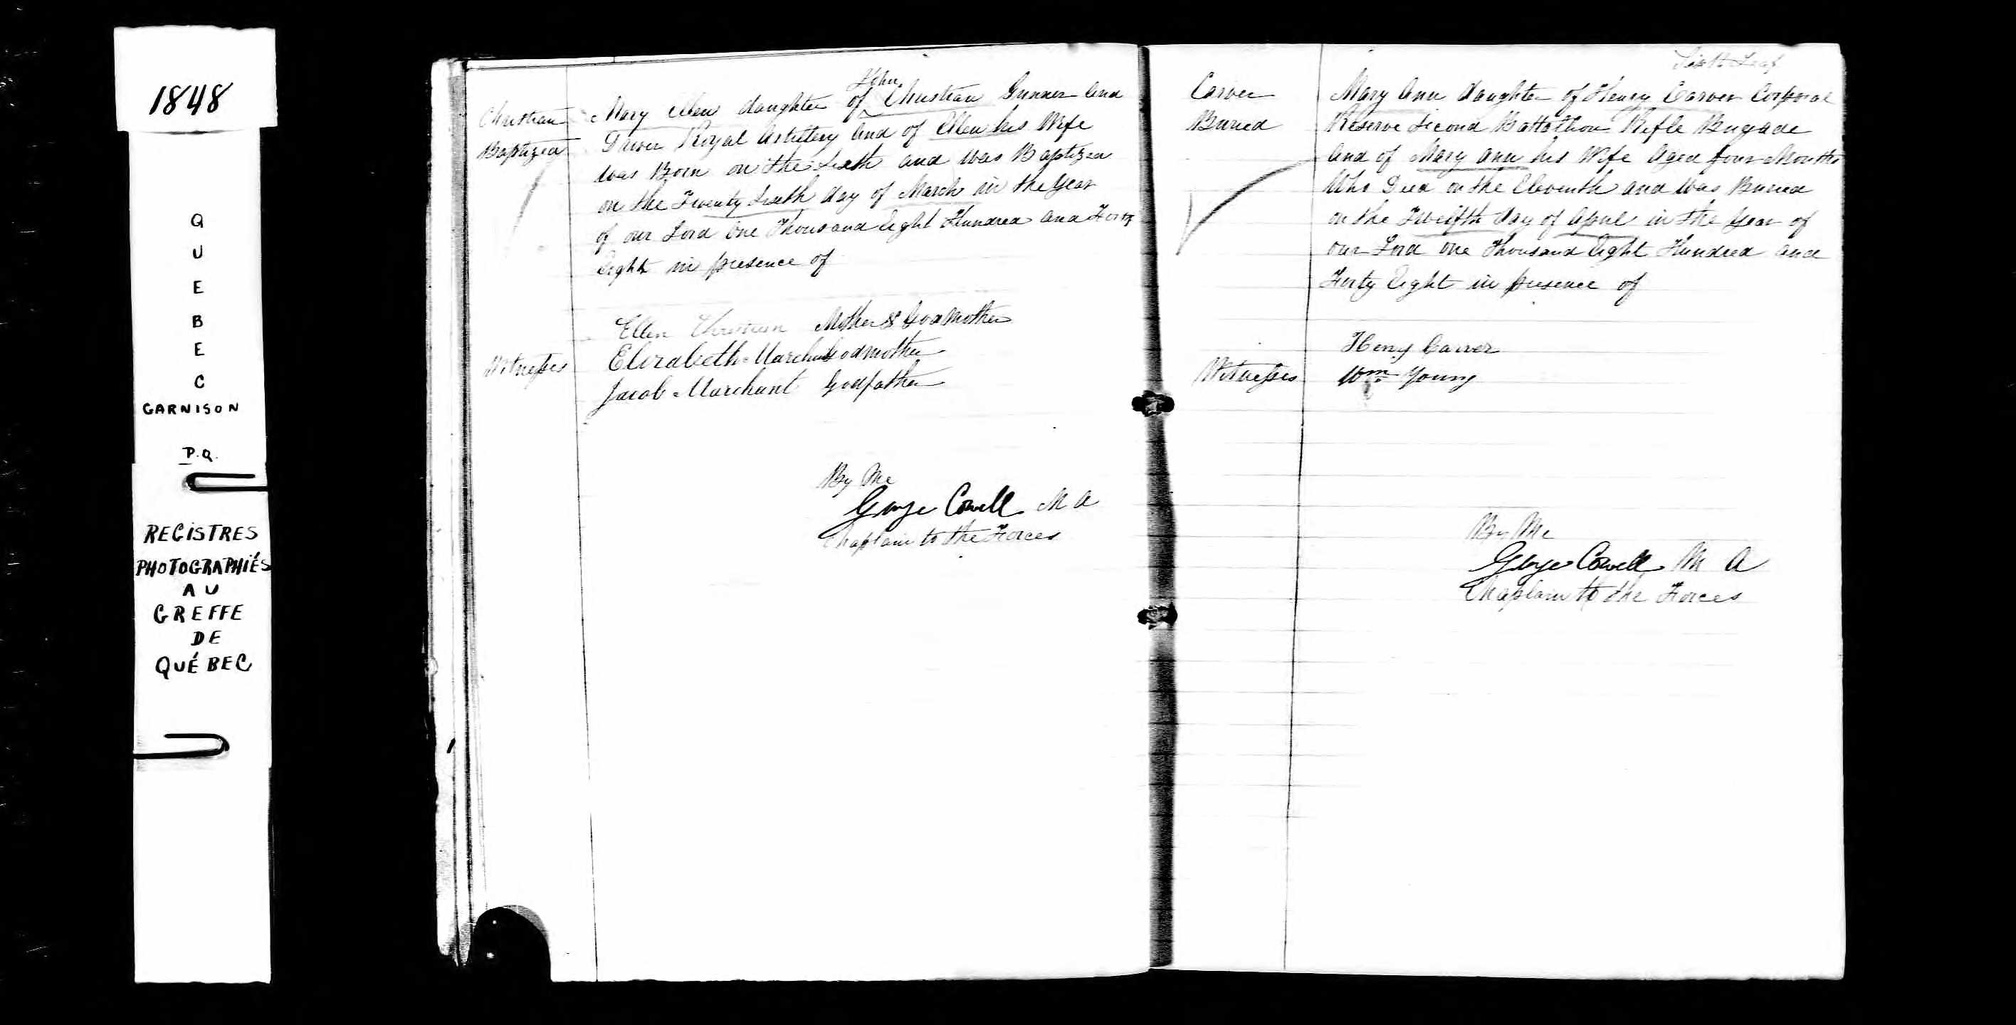 1848
QUEBEC
GARNISON
P.Q.
REGISTRES
PHOTOGRAPHIÉS
AU
GREFFE
DE
QUÉBEC
Christian
Baptized
Mary Ellen daughter of John Christian Gunner and
Driver Royal Artillery and of Ellen his Wife
was Born on the Sixth and was Baptized
on the Twenty Sixth day of March in the Year
of our Lord One Thousand Eight Hundred and Forty
Eight in presence of
Ellen Christian Mother & Godmother
Witnesses
Elizabeth Marchant Godmother
Jacob Marchant Godfather
By Me
George Cowell M A
Chaplain to the Forces
Sixth Leaf
Carver
Buried
Mary Ann daughter of Henry Carver Corporal
Reserve Second Battalhon Rifle Brigade
and of Mary Ann his Wife Aged four Months
Who Died on the Eleventh and was Buried
on the Twelfth day of April in the Year of
our Lord One Thousand Eight Hundred and
Forty Eight in presence of
Henry Carver
Witnesses
Wm Young
By Me
George Cowell M A
Chaplain to the Forces